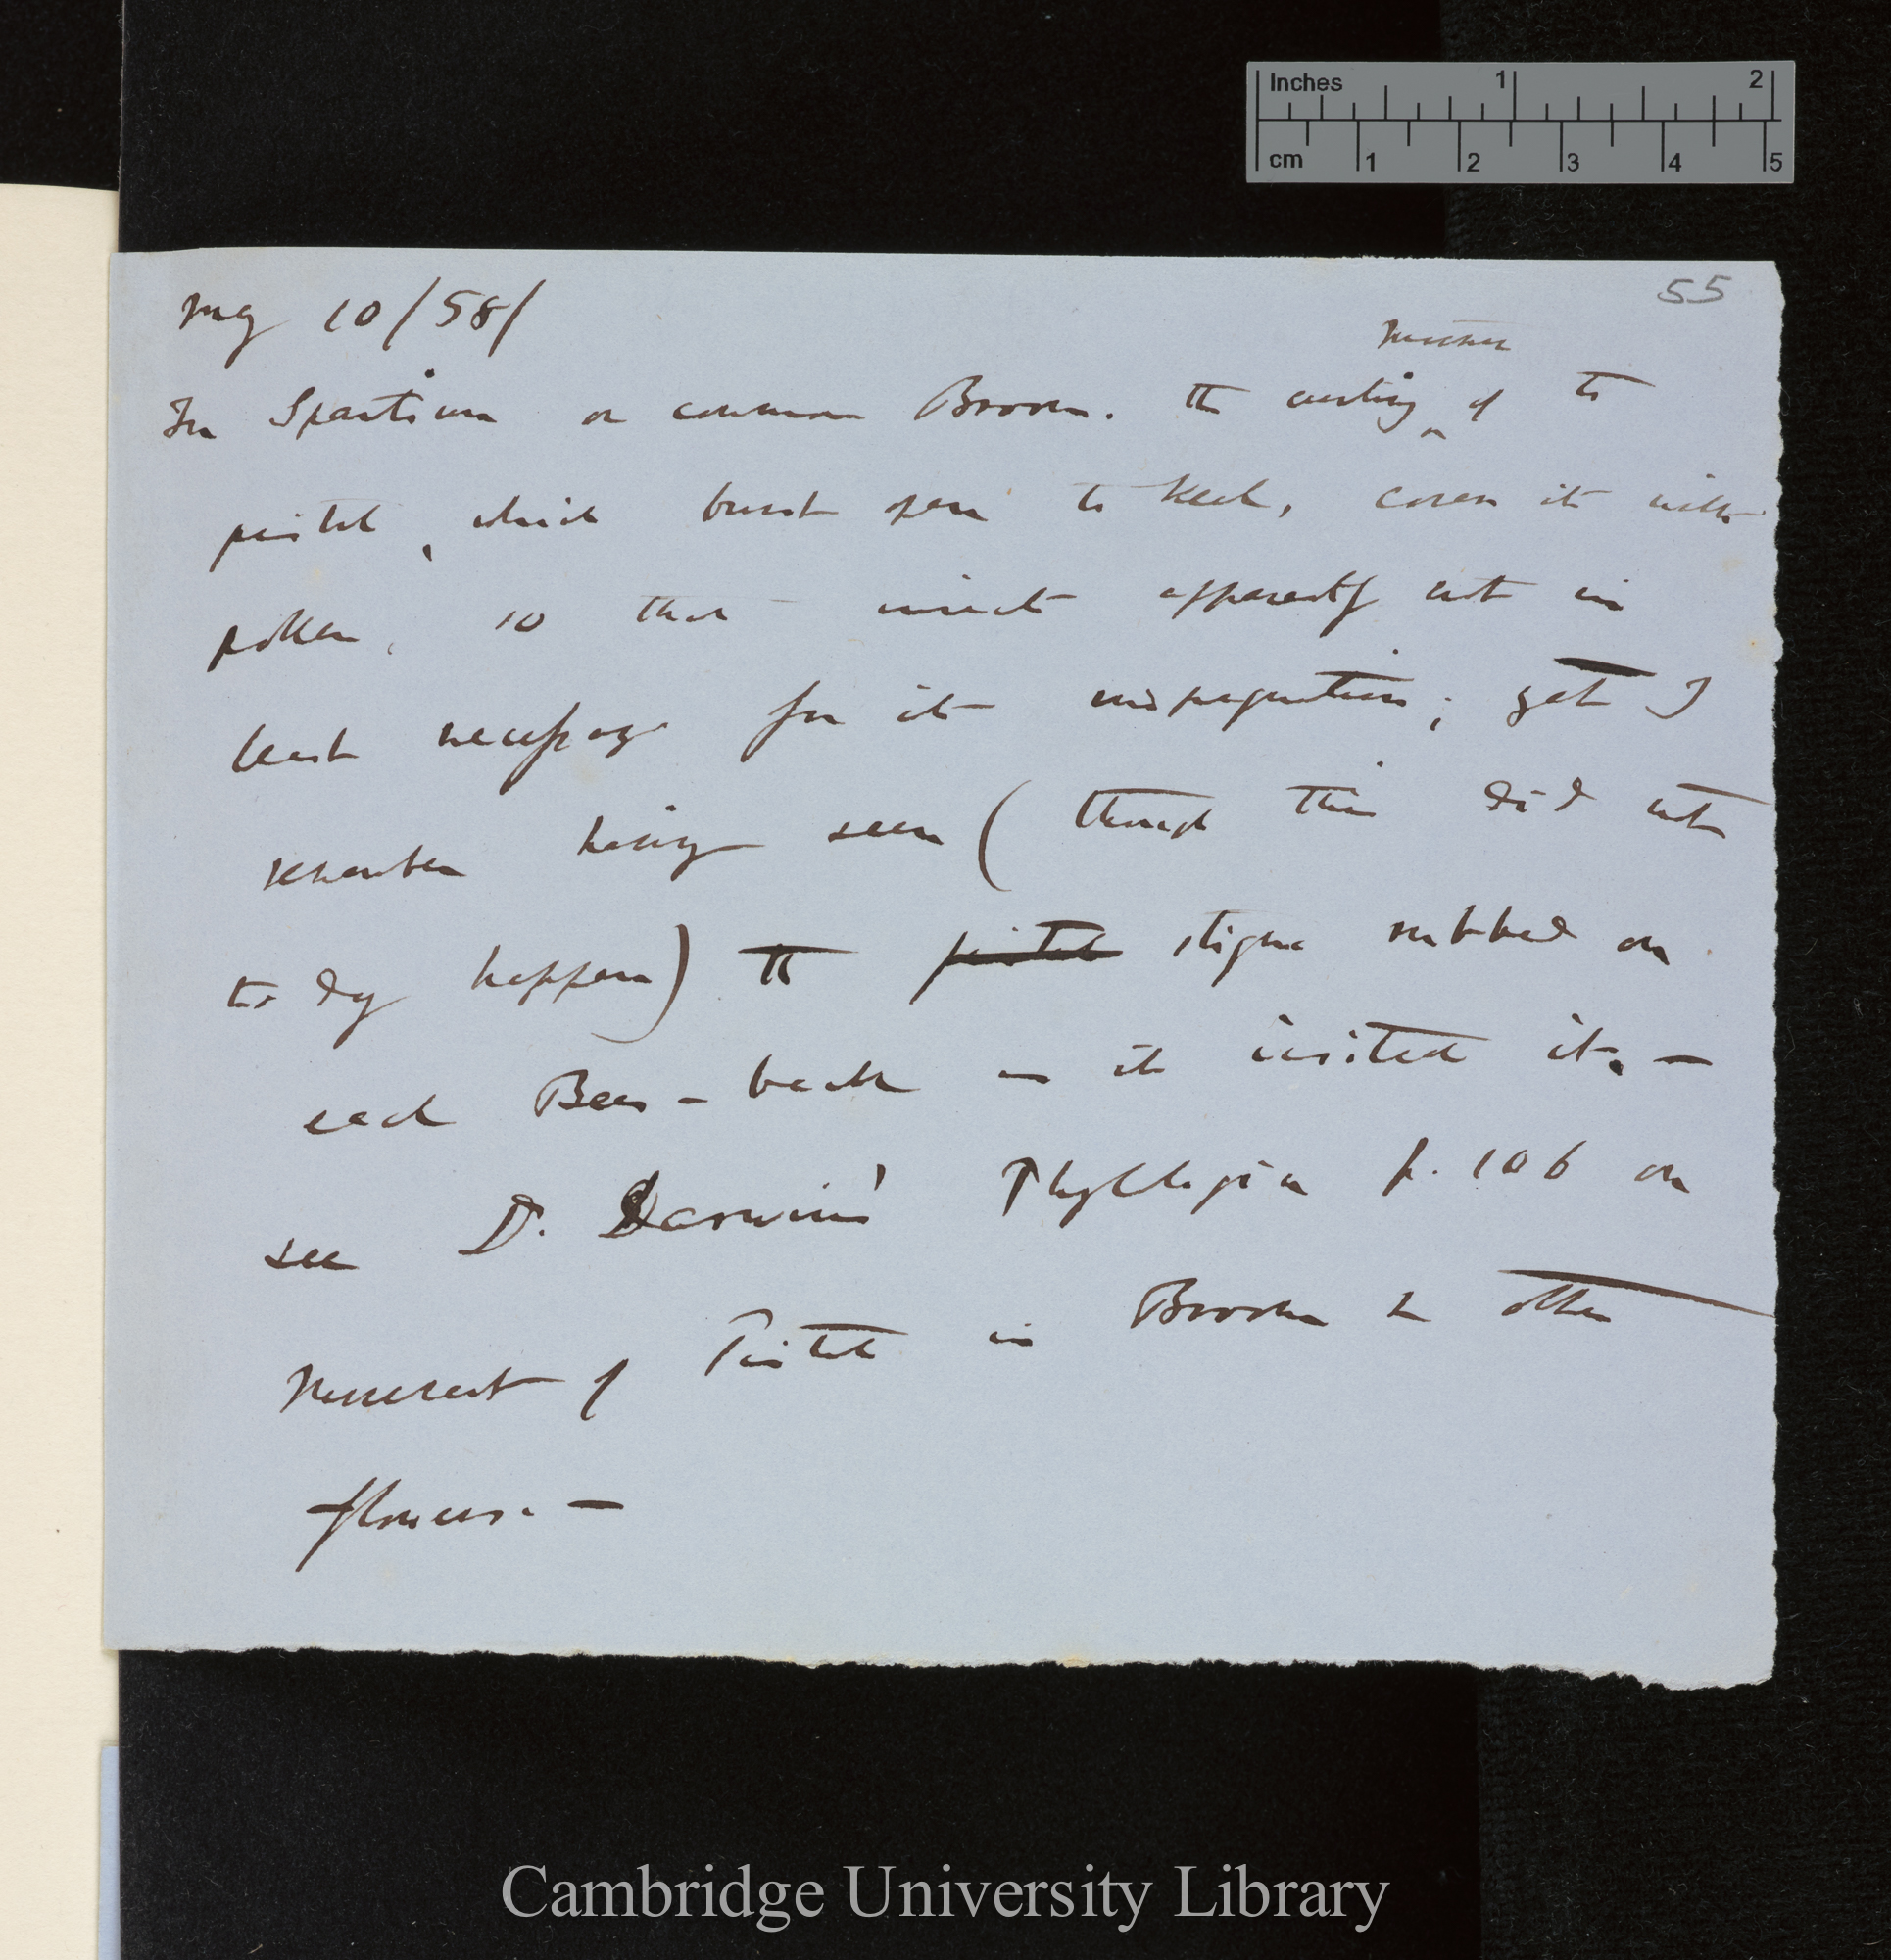 Inches 1 2
cm 1 2 3 4 5
55
May 10/58/
movement
In Spartium or common Broom. the curling of the
pistil, which burst open the keel, covers it with
pollen, so that insects apparently not in
least necessary for its propagation; yet I
remember having seen (though this did not
to day happen) the pistil stigma rubbed on
each Bees-back as it visited it. —
See Dr. Darwin's Phytologia p. 106 on
movement of Pistil in Broom & other
flowers. —
Cambridge University Library